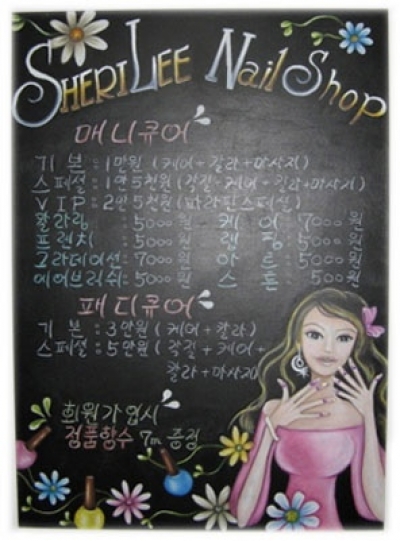 SHERILEE Nail Shop
매니큐어
기 본 : 1만원 (케어+칼라+마사지)
스페셜 : 1만5천원 (각질+케어+칼라+마사지)
V I P : 2만5천원 (파라핀스페셜)
칼라링 : 5000원 케 어 7000원
프렌치 : 5000원 랩 핑 5000원
그라데이션 : 7000원 아 트 5000원
에어브러쉬 : 5000원 스 톤 500원
패디큐어
기 본 : 3만원 (케어+칼라)
스페셜 : 5만원 (각질+케어+
칼라+마사지)
회원가입시
정품향수 7ml 증정